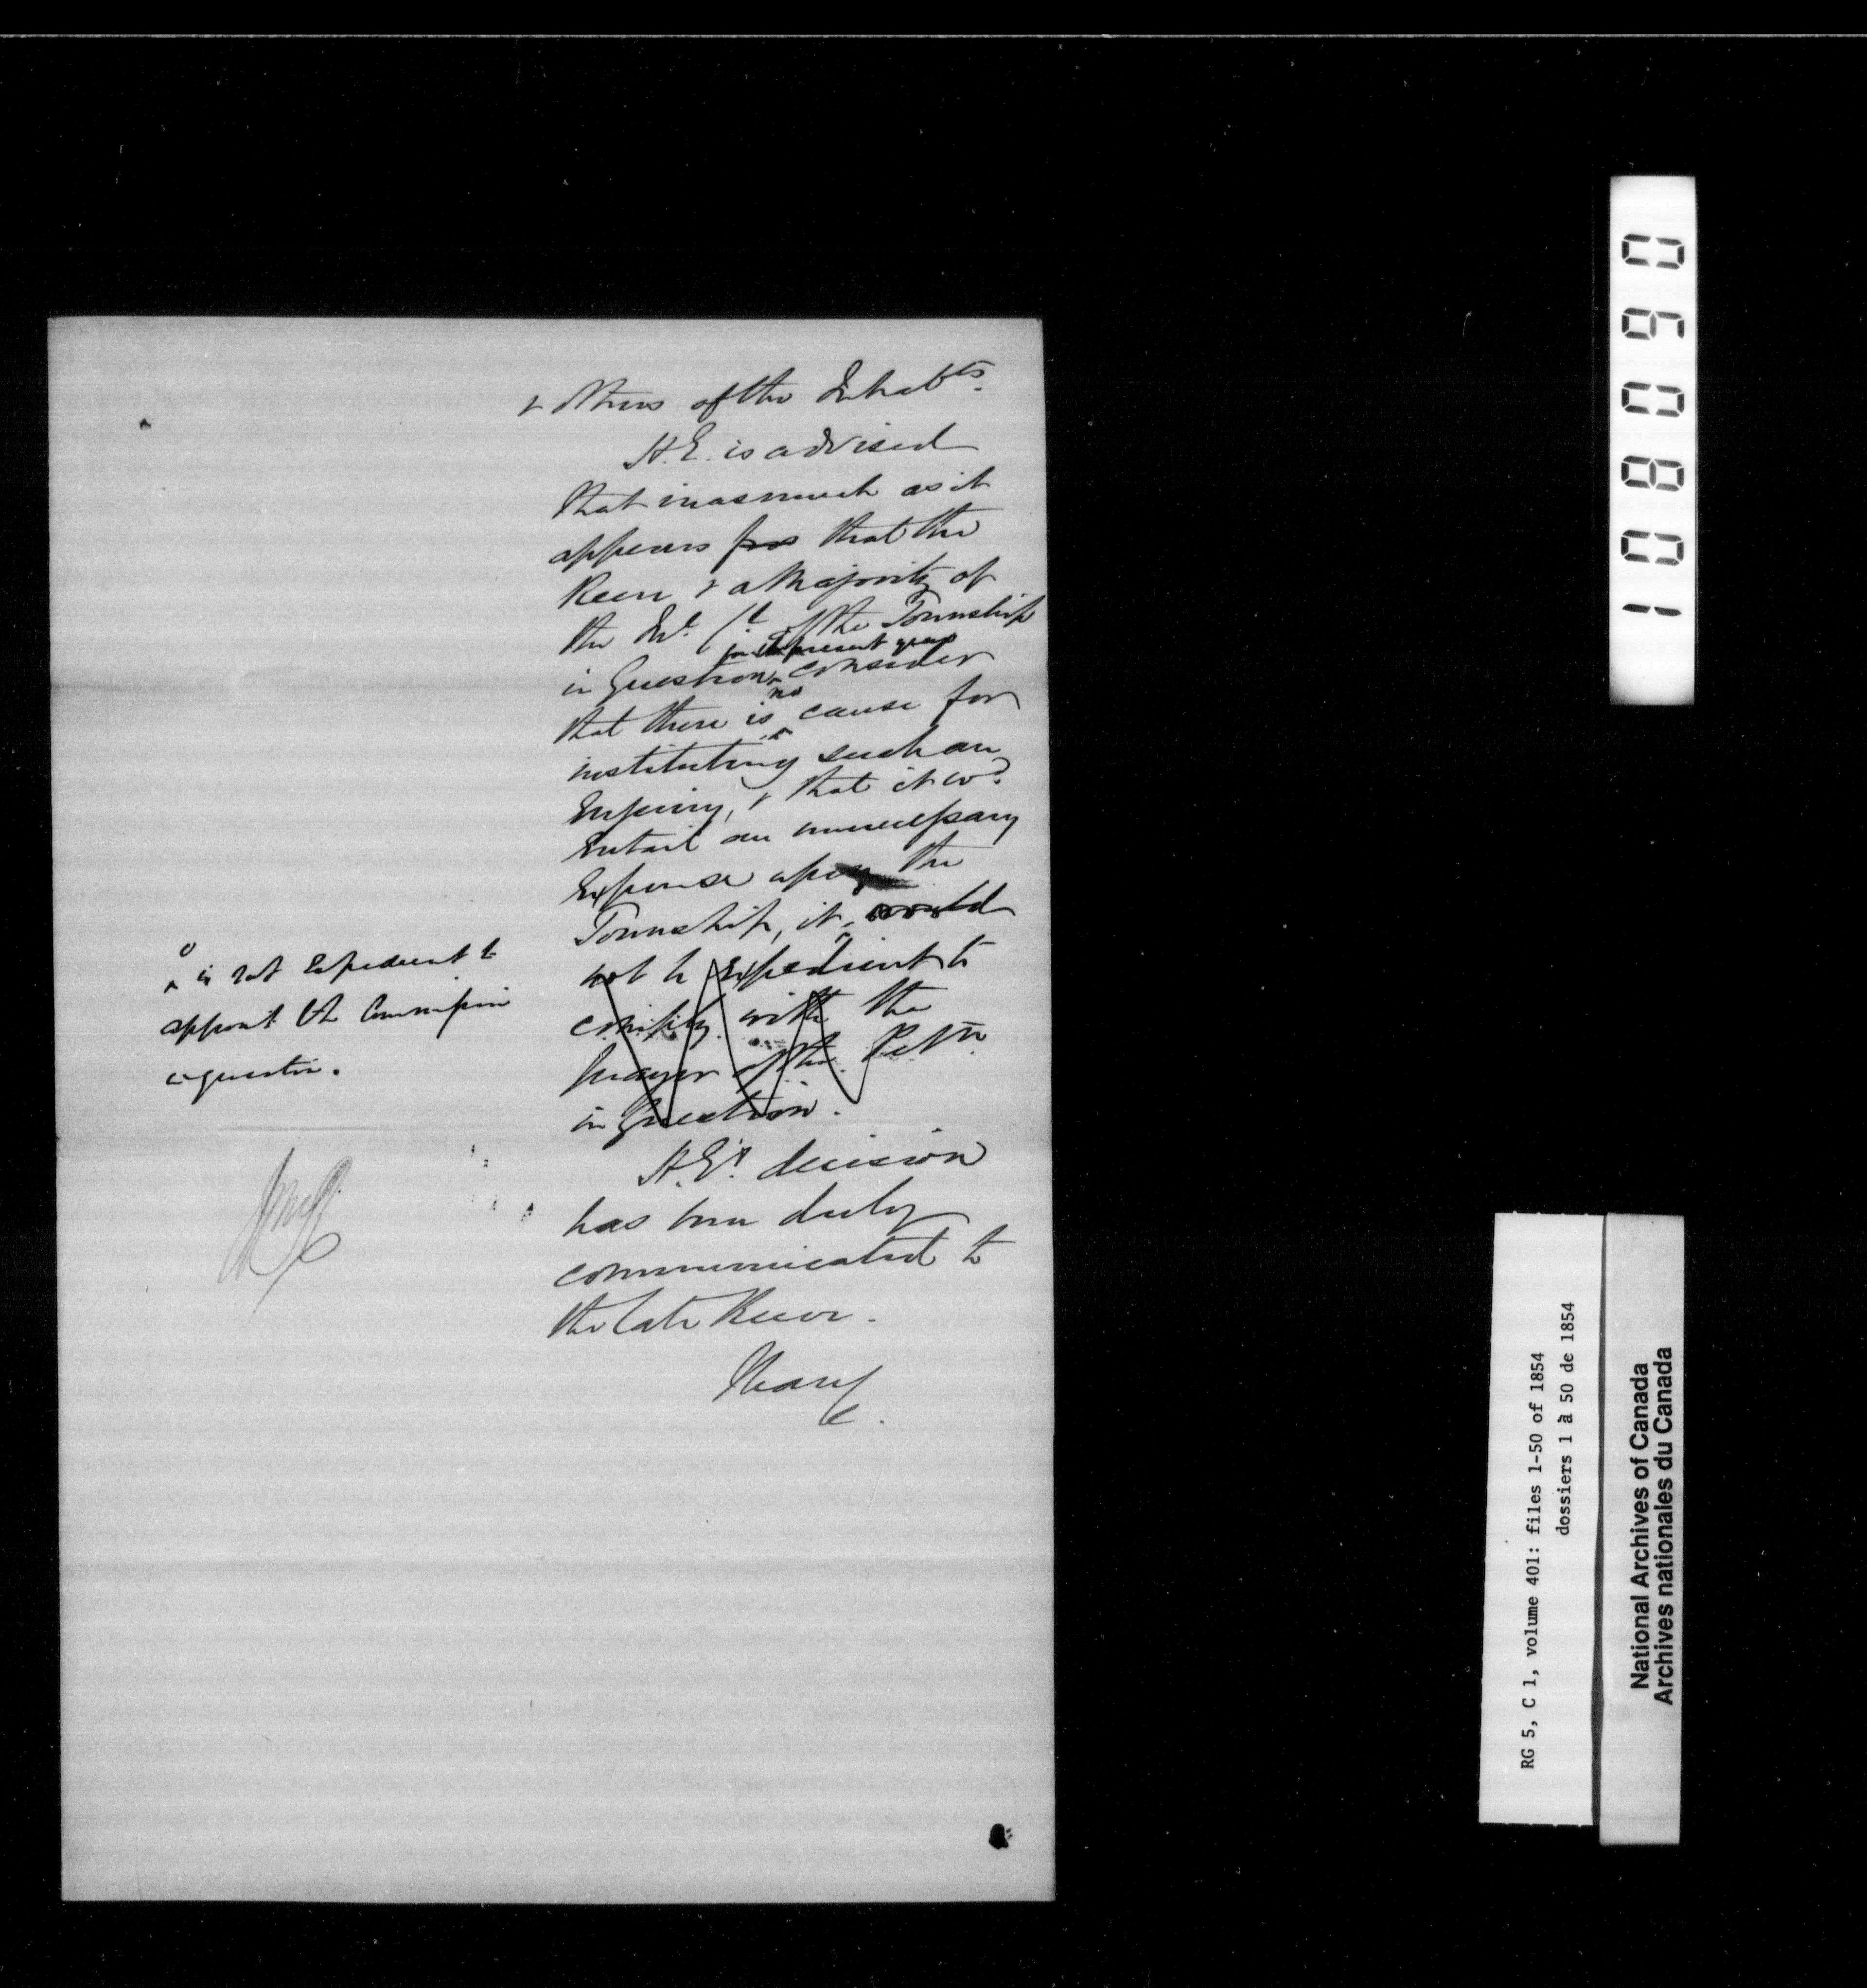 & others of the Inhabts.
H.E. is advised
that inasmuch as it
appears that the
Reeve & a Majority of
the of the Township
for the present year
in Question, consider
no
that there is cause for
instituting such an
Enquiry, & that it wd.
Entail an unnecessary
Expense upon the
Township, it would
not be Expedient to
comply with the
prayer of the Petn.
in Question.
^ is not Expedient to
appoint the Commission
in question.
H.E's. decision
has been duly
communicated to
the late Reeve.
108090
RG 5, C 1, volume 401: files 1-50 of 1854
dossiers 1 à 50 de 1854
National Archives of Canada
Archives nationales du Canada